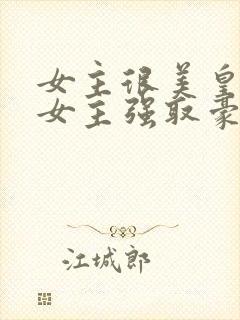 女主很美皇
女主强取豪
江城郎